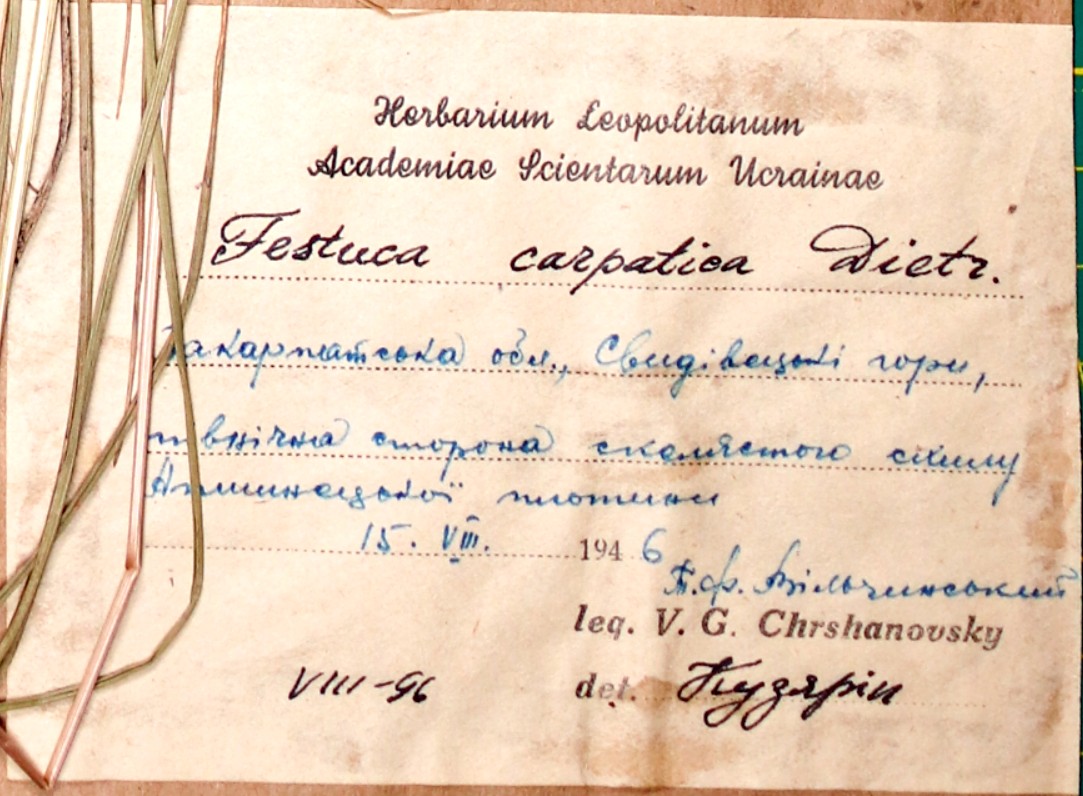 Herbarium Leopolitanum
Academiae Scientarum Ucrainae
Festuca carpatica Dietr.
Закарпатська обл., Свидівецькі гори,
північна сторона скелястого схилу
Апшинецької
15. VIII. 1946
leg. V. G. Chrshanovsky
VIII-96 det. Кузярін